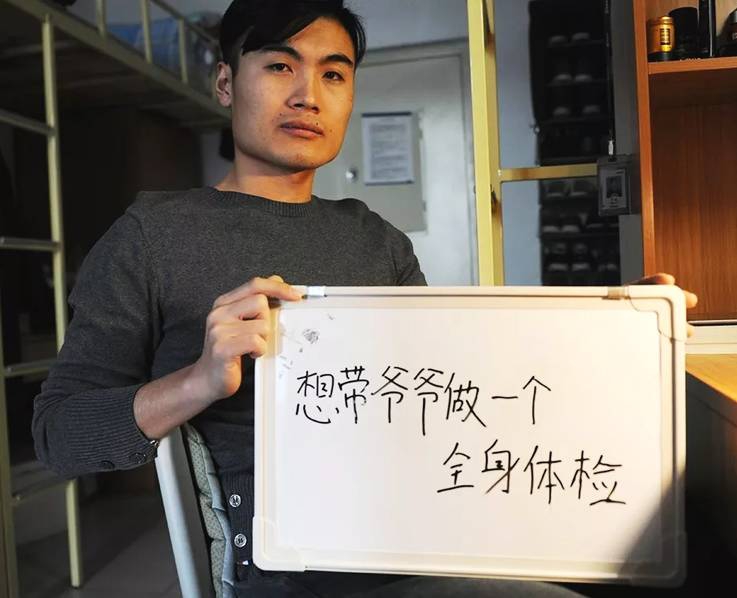 想带爷爷做一个
全身体检